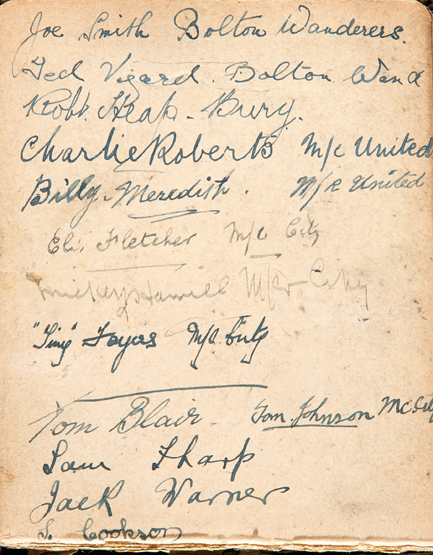 Joe Smith Bolton Wanderers.
Ted Vizard. Bolton Wand
Robt Heap - Bury.
Charlie Roberts M/c United
Billy Meredith. M/c United
Eli Fletcher M/c City
Mickey Hamill M/cr City
"Tiny" Fayers M/c City
Tom Blair. Tom Johnson Mc. City
Sam Sharp
Jack Warner
S. Cookson